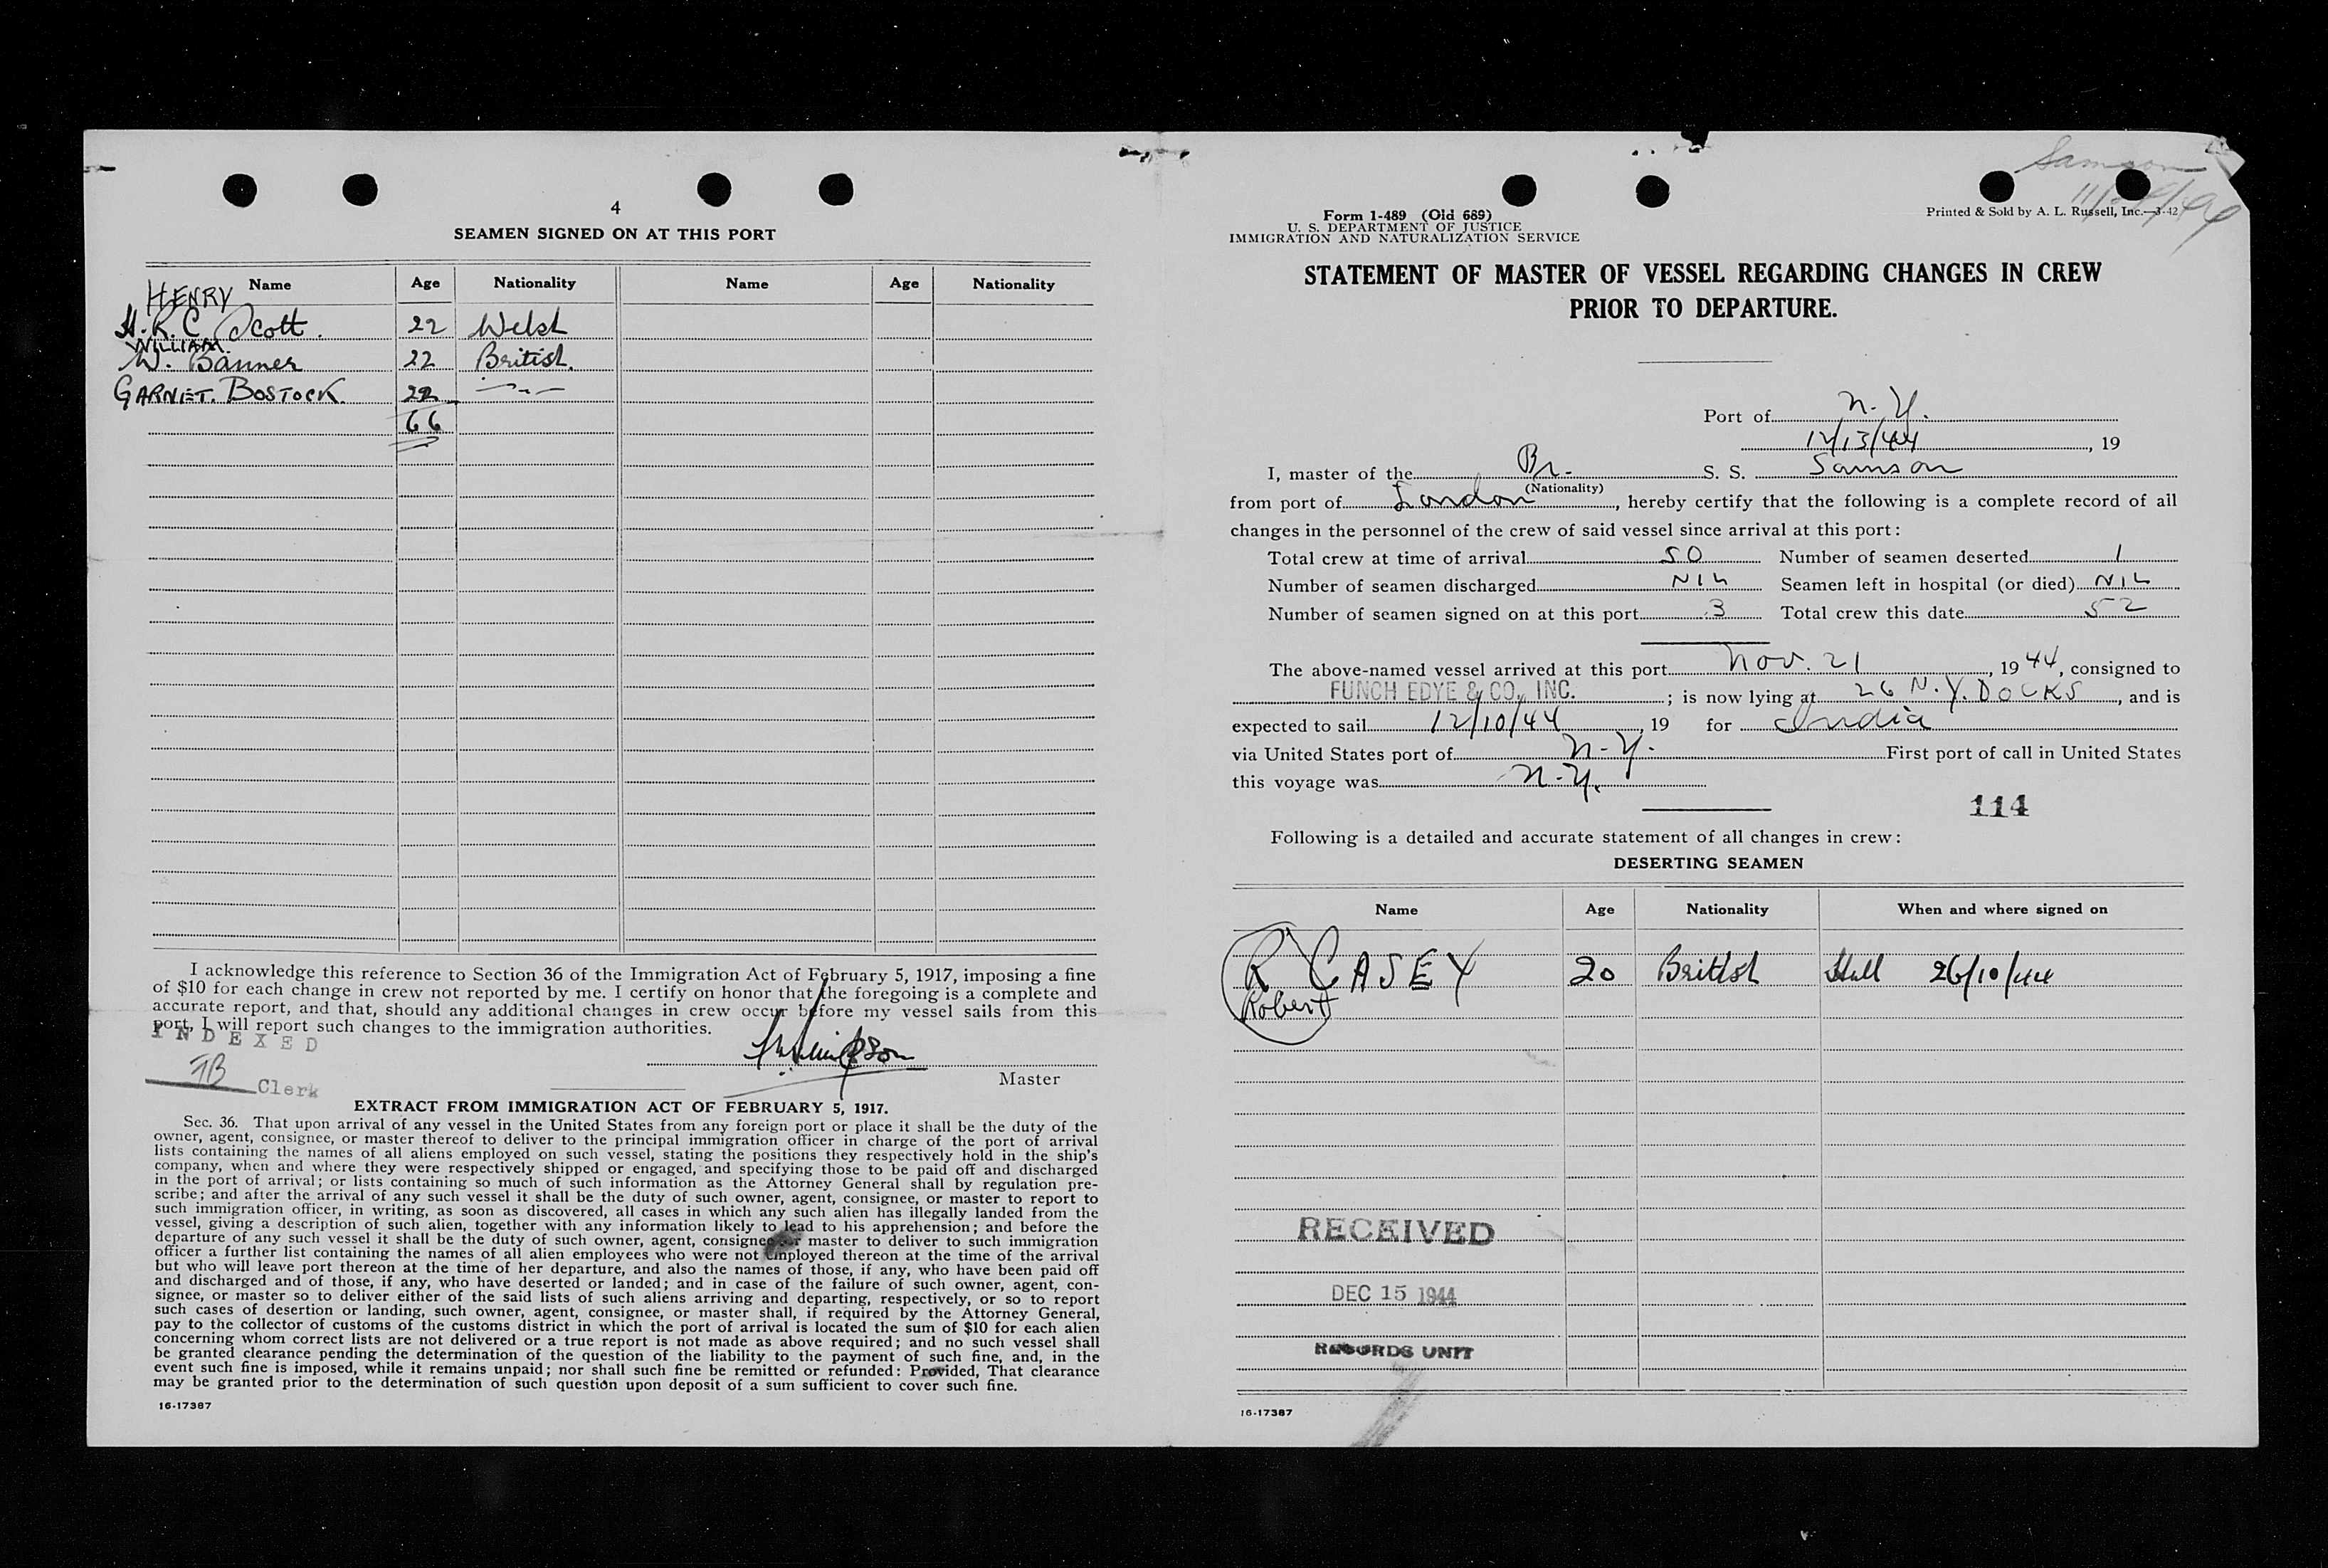 4
SEAMEN SIGNED ON AT THIS PORT
Name Age Nationality Name Age Nationality
HENRY
H. R. C. Scott. 22 Welsh
WILLIAM.
W. Banner 22 British.
GARNET. BOSTOCK. 22 —〃—
66
I acknowledge this reference to Section 36 of the Immigration Act of February 5, 1917, imposing a fine
of $10 for each change in crew not reported by me. I certify on honor that the foregoing is a complete and
accurate report, and that, should any additional changes in crew occur before my vessel sails from this
port, I will report such changes to the immigration authorities.
INDEXED
JB Clerk
Master
EXTRACT FROM IMMIGRATION ACT OF FEBRUARY 5, 1917.
Sec. 36. That upon arrival of any vessel in the United States from any foreign port or place it shall be the duty of the
owner, agent, consignee, or master thereof to deliver to the principal immigration officer in charge of the port of arrival
lists containing the names of all aliens employed on such vessel, stating the positions they respectively hold in the ship's
company, when and where they were respectively shipped or engaged, and specifying those to be paid off and discharged
in the port of arrival; or lists containing so much of such information as the Attorney General shall by regulation pre-
scribe; and after the arrival of any such vessel it shall be the duty of such owner, agent, consignee, or master to report to
such immigration officer, in writing, as soon as discovered, all cases in which any such alien has illegally landed from the
vessel, giving a description of such alien, together with any information likely to lead to his apprehension; and before the
departure of any such vessel it shall be the duty of such owner, agent, consignee or master to deliver to such immigration
officer a further list containing the names of all alien employees who were not employed thereon at the time of the arrival
but who will leave port thereon at the time of her departure, and also the names of those, if any, who have been paid off
and discharged and of those, if any, who have deserted or landed; and in case of the failure of such owner, agent, con-
signee, or master so to deliver either of the said lists of such aliens arriving and departing, respectively, or so to report
such cases of desertion or landing, such owner, agent, consignee, or master shall, if required by the Attorney General,
pay to the collector of customs of the customs district in which the port of arrival is located the sum of $10 for each alien
concerning whom correct lists are not delivered or a true report is not made as above required; and no such vessel shall
be granted clearance pending the determination of the question of the liability to the payment of such fine, and, in the
event such fine is imposed, while it remains unpaid; nor shall such fine be remitted or refunded: Provided, That clearance
may be granted prior to the determination of such question upon deposit of a sum sufficient to cover such fine.
16-17387
Samson
Form 1-489 (Old 689)
U. S. DEPARTMENT OF JUSTICE
IMMIGRATION AND NATURALIZATION SERVICE
Printed & Sold by A. L. Russell, Inc.—3-42
STATEMENT OF MASTER OF VESSEL REGARDING CHANGES IN CREW
PRIOR TO DEPARTURE.
Port of N. Y.
12/13/44, 19
I, master of the Br. S. S. Samson
(Nationality)
from port of London, hereby certify that the following is a complete record of all
changes in the personnel of the crew of said vessel since arrival at this port:
Total crew at time of arrival 50 Number of seamen deserted 1
Number of seamen discharged NIL Seamen left in hospital (or died) NIL
Number of seamen signed on at this port 3 Total crew this date 52
The above-named vessel arrived at this port Nov. 21, 1944, consigned to
FUNCH EDYE & CO., INC.; is now lying at 26 N. Y. DOCKS, and is
expected to sail 12/10/44, 19 for India
via United States port of N-Y. First port of call in United States
this voyage was N-Y.
114
Following is a detailed and accurate statement of all changes in crew:
DESERTING SEAMEN
Name Age Nationality When and where signed on
R CASEY 20 British Hull 26/10/44
Robert
RECEIVED
DEC 15 1944
RECORDS UNIT
16-17387